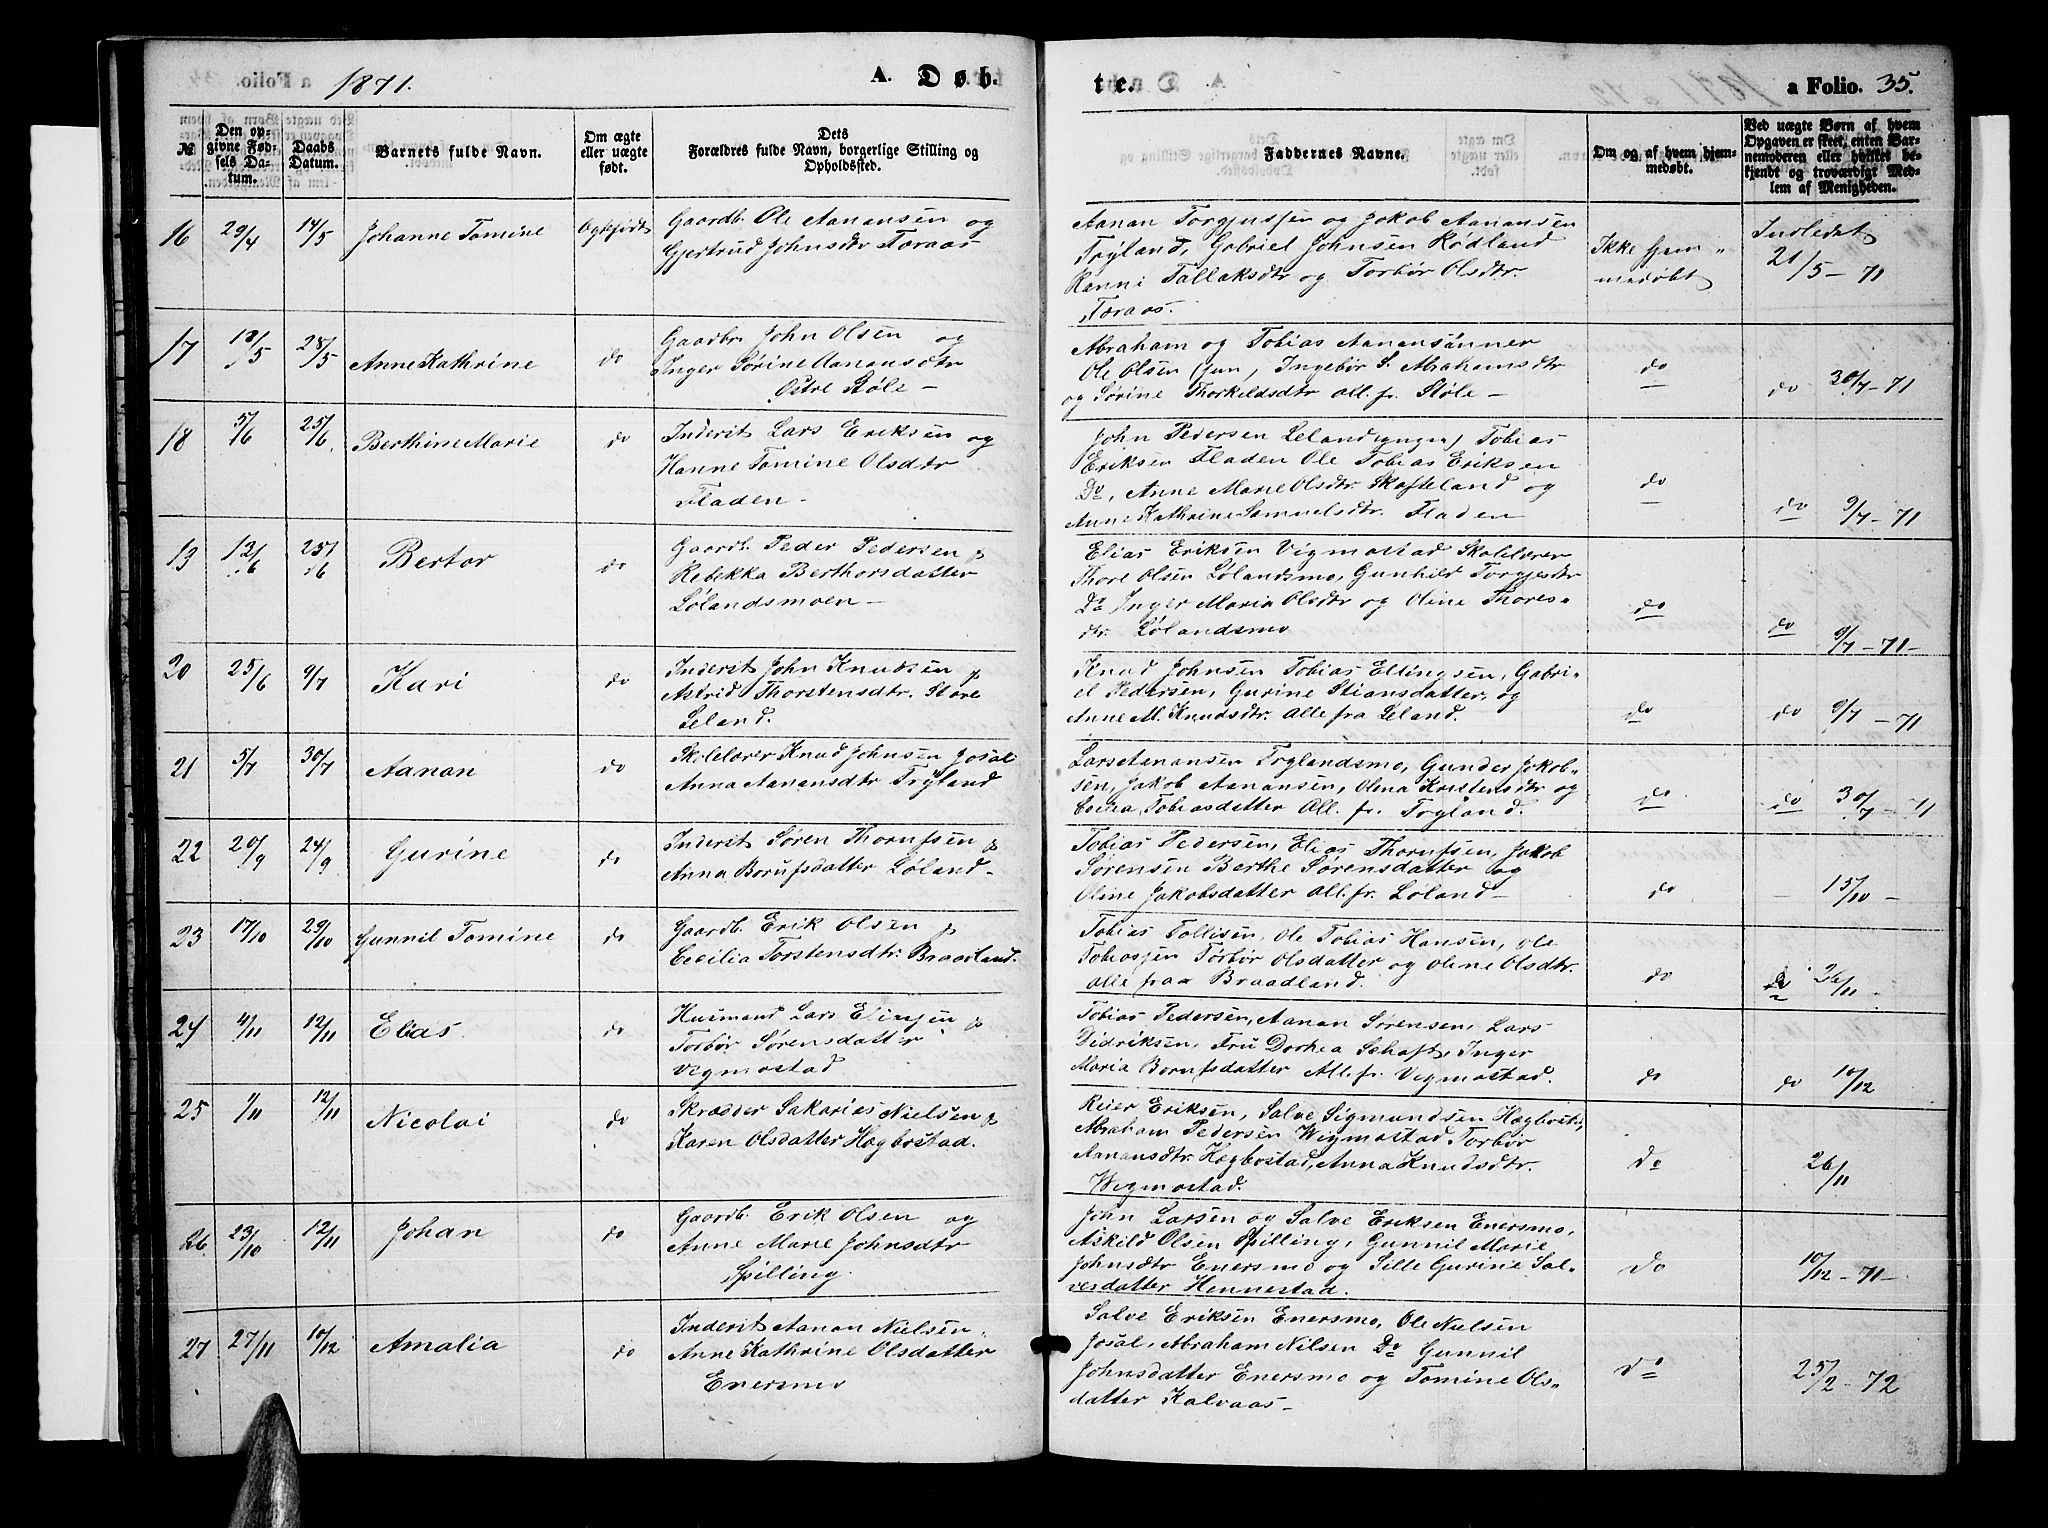 1871.
A. Døb-
№
Den op-
givne Fød-
sels Da-
tum.
Daabs
Datum.
Barnets fulde Navn.
Om ægte
eller uægte
født.
Dets
Forældres fulde Navn, borgerlige Stilling og
Opholdssted.
te.
a Folio. 35.
Faddernes Navne.
Om og af hvem hjem-
medøbt.
Ved uægte Børn af hvem
Opgaven er skeet, enten Bar-
nemoderen eller hvilket be-
kjendt og troværdigt Med-
lem af Menigheden.
16 29/4 14/5 Johanne Tomine Ægtefødt
Gaardb. Ole Aanansen og
Gjertrud Johnsdtr Foraas
Aanan Torgjussen og Jakob Aanansen
Trÿland, Gabriel Johnsen Rødland
Ranni Tallaksdtr og Torbør Olsdtr.
Foraas.
Ikke hjem-
medøbt
Indledet
21/5 - 71
17 18/5 28/5 Anne Kathrine do
Gaardbr John Olsen og
Inger Sørine Aanansdtr
Østre Støle -
Abraham og Tobias Aanansønner
Ole Olsen (jun, Ingebør S. Abrahamsdtr
og Sørine Thorkildsdtr all. fr. Støle -
do
do 30/7 - 71
18 5/6 25/6 Berthine Marie do
Inderst Lars Eriksen og
Hanne Tomine Olsdtr
Fladen -
John Pedersen Leland (yngre) Tobias
Eriksen Fladen Ole Tobias Eriksen
Do, Anne Marie Olsdtr. Skofteland og
Anne Kathrine Samuelsdtr. Fladen
do
do 9/7 - 71
19 12/6 25/6 Bertor do
Gaardb. Peder Pedersen &
Rebekka Berthorsdatter
Lølandsmoen -
Elias Eriksen Vigmostad Skolelærer
Thore Olsen Lølandsmo, Gunhild Torgjesdtr
Do Inger Maria Olsdtr og Oline Thores-
dtr. Lølandsmo
do
do 9/7 - 71 -
20 25/6 9/7 Kari do
Inderst John Knudsen &
Astrid Thorstensdtr. Store
Leland.
Knud Johnsen Tobias Ellingsen, Gabri-
el Pedersen, Gurine Stiansdatter, og
Anne M. Knudsdtr. Alle fra Leland.
do
do 9/7 - 71
21 5/7 30/7 Aanan do
Skolelærer Knud Johnsen Josdal
Anna Aanansdtr Trÿland
Lars Aanansen Trÿlandsmo, Gunder Jakob-
sen, Jakob Aanansen, Olena Kristensdtr og
Tobiasdatter All. fr. Trÿland.
do
do 30/7 - 71
22 20/9 24/9 Gurine do
Inderst Søren Thorufsen &
Anna Borufsdatter Løland -
Tobias Pedersen, Elias Thorufsen, Jakob
Sørensen Berthe Sørensdatter og
Oline Jakobsdatter all. fr. Løland -
do
- 15/10 -
23 17/10 29/10 Gunnil Tomine do
Gaardb. Erik Olsen &
Cecilia Torstensdtr. Braadland.
Tobias Tollisen, Ole Tobias Hansen, Ole
Tobiassen Torbør Olsdatter og Oline Olsdtr.
alle fraa Braadland.
do
do 26/11 -
24 4/11 12/11 Elias. do
Husmand Lars Eliassen &
Torbør Sørensdatter
Vigmostad
Tobias Pedersen, Aanan Sørensen, Lars
Didriksen, Fru Dorhea Schaft, Inger
Maria Borufsdatter All. fr. Vigmostad.
do
do 10/12
25 1/11 12/11 Nicolai do
Skrædder Sakarias Nielsen &
Karen Olsdatter Hægbostad.
Reier Eriksen, Salve Sigmundsen Hægbost.,
Abraham Pedersen Wigmostad Torbør
Aanansdtr. Hægbostad, Anna Knudsdtr.
Wigmostad.
do
26/11
26 23/10 12/11 Johan do
Gaardb. Erik Olsen og
Anne Marie Johnsdtr
Spilling.
John Larsen og Salve Eriksen Enersmo,
Askild Olsen Spilling, Gunnil Marie
Johnsdtr Enersmo og Sille Gurine Sal-
vesdatter Hennestad.
do
10/12 - 71 -
27 27/11 10/12 Amalia do
Inderst Aanan Nielsen.
Anne Kathrine Olsdatter
Enersmo
Salve Eriksen Enersmo, Ole Nielsen
Josal, Abraham Nilsen Do Gunnil
Johnsdatter Enersmo og Tomine Ols-
datter Kalvaas -
do
25/2 - 72